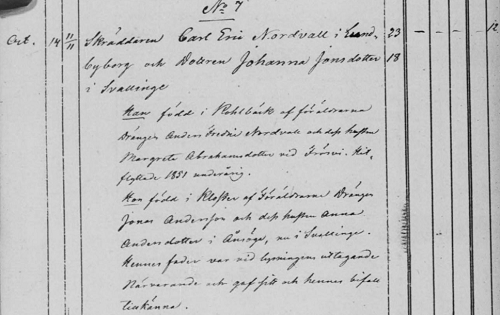 No 7
Oct. 14 11/11 Skräddaren Carl Eric Nordvall i Sund- 23 - - - - 12
byborg och Dottren Johanna Jonsdotter 18
i Svallinge
Han född i Kohlbäck af föräldrarna
Drängen Anders Fredric Nordvall och dess hustru
Margreta Abrahamsdotter vid Frösvi. Hit-
flyttade 1851
Hon född i Kloster af Föräldrarne Drängen
Jonas Andersson och dess hustru Anna
Andersdotter i nu i Svallinge.
Hennes fader var vid lysningens uttagande
Närvarande och gaf sitt och hennes bifall
tillkänna.